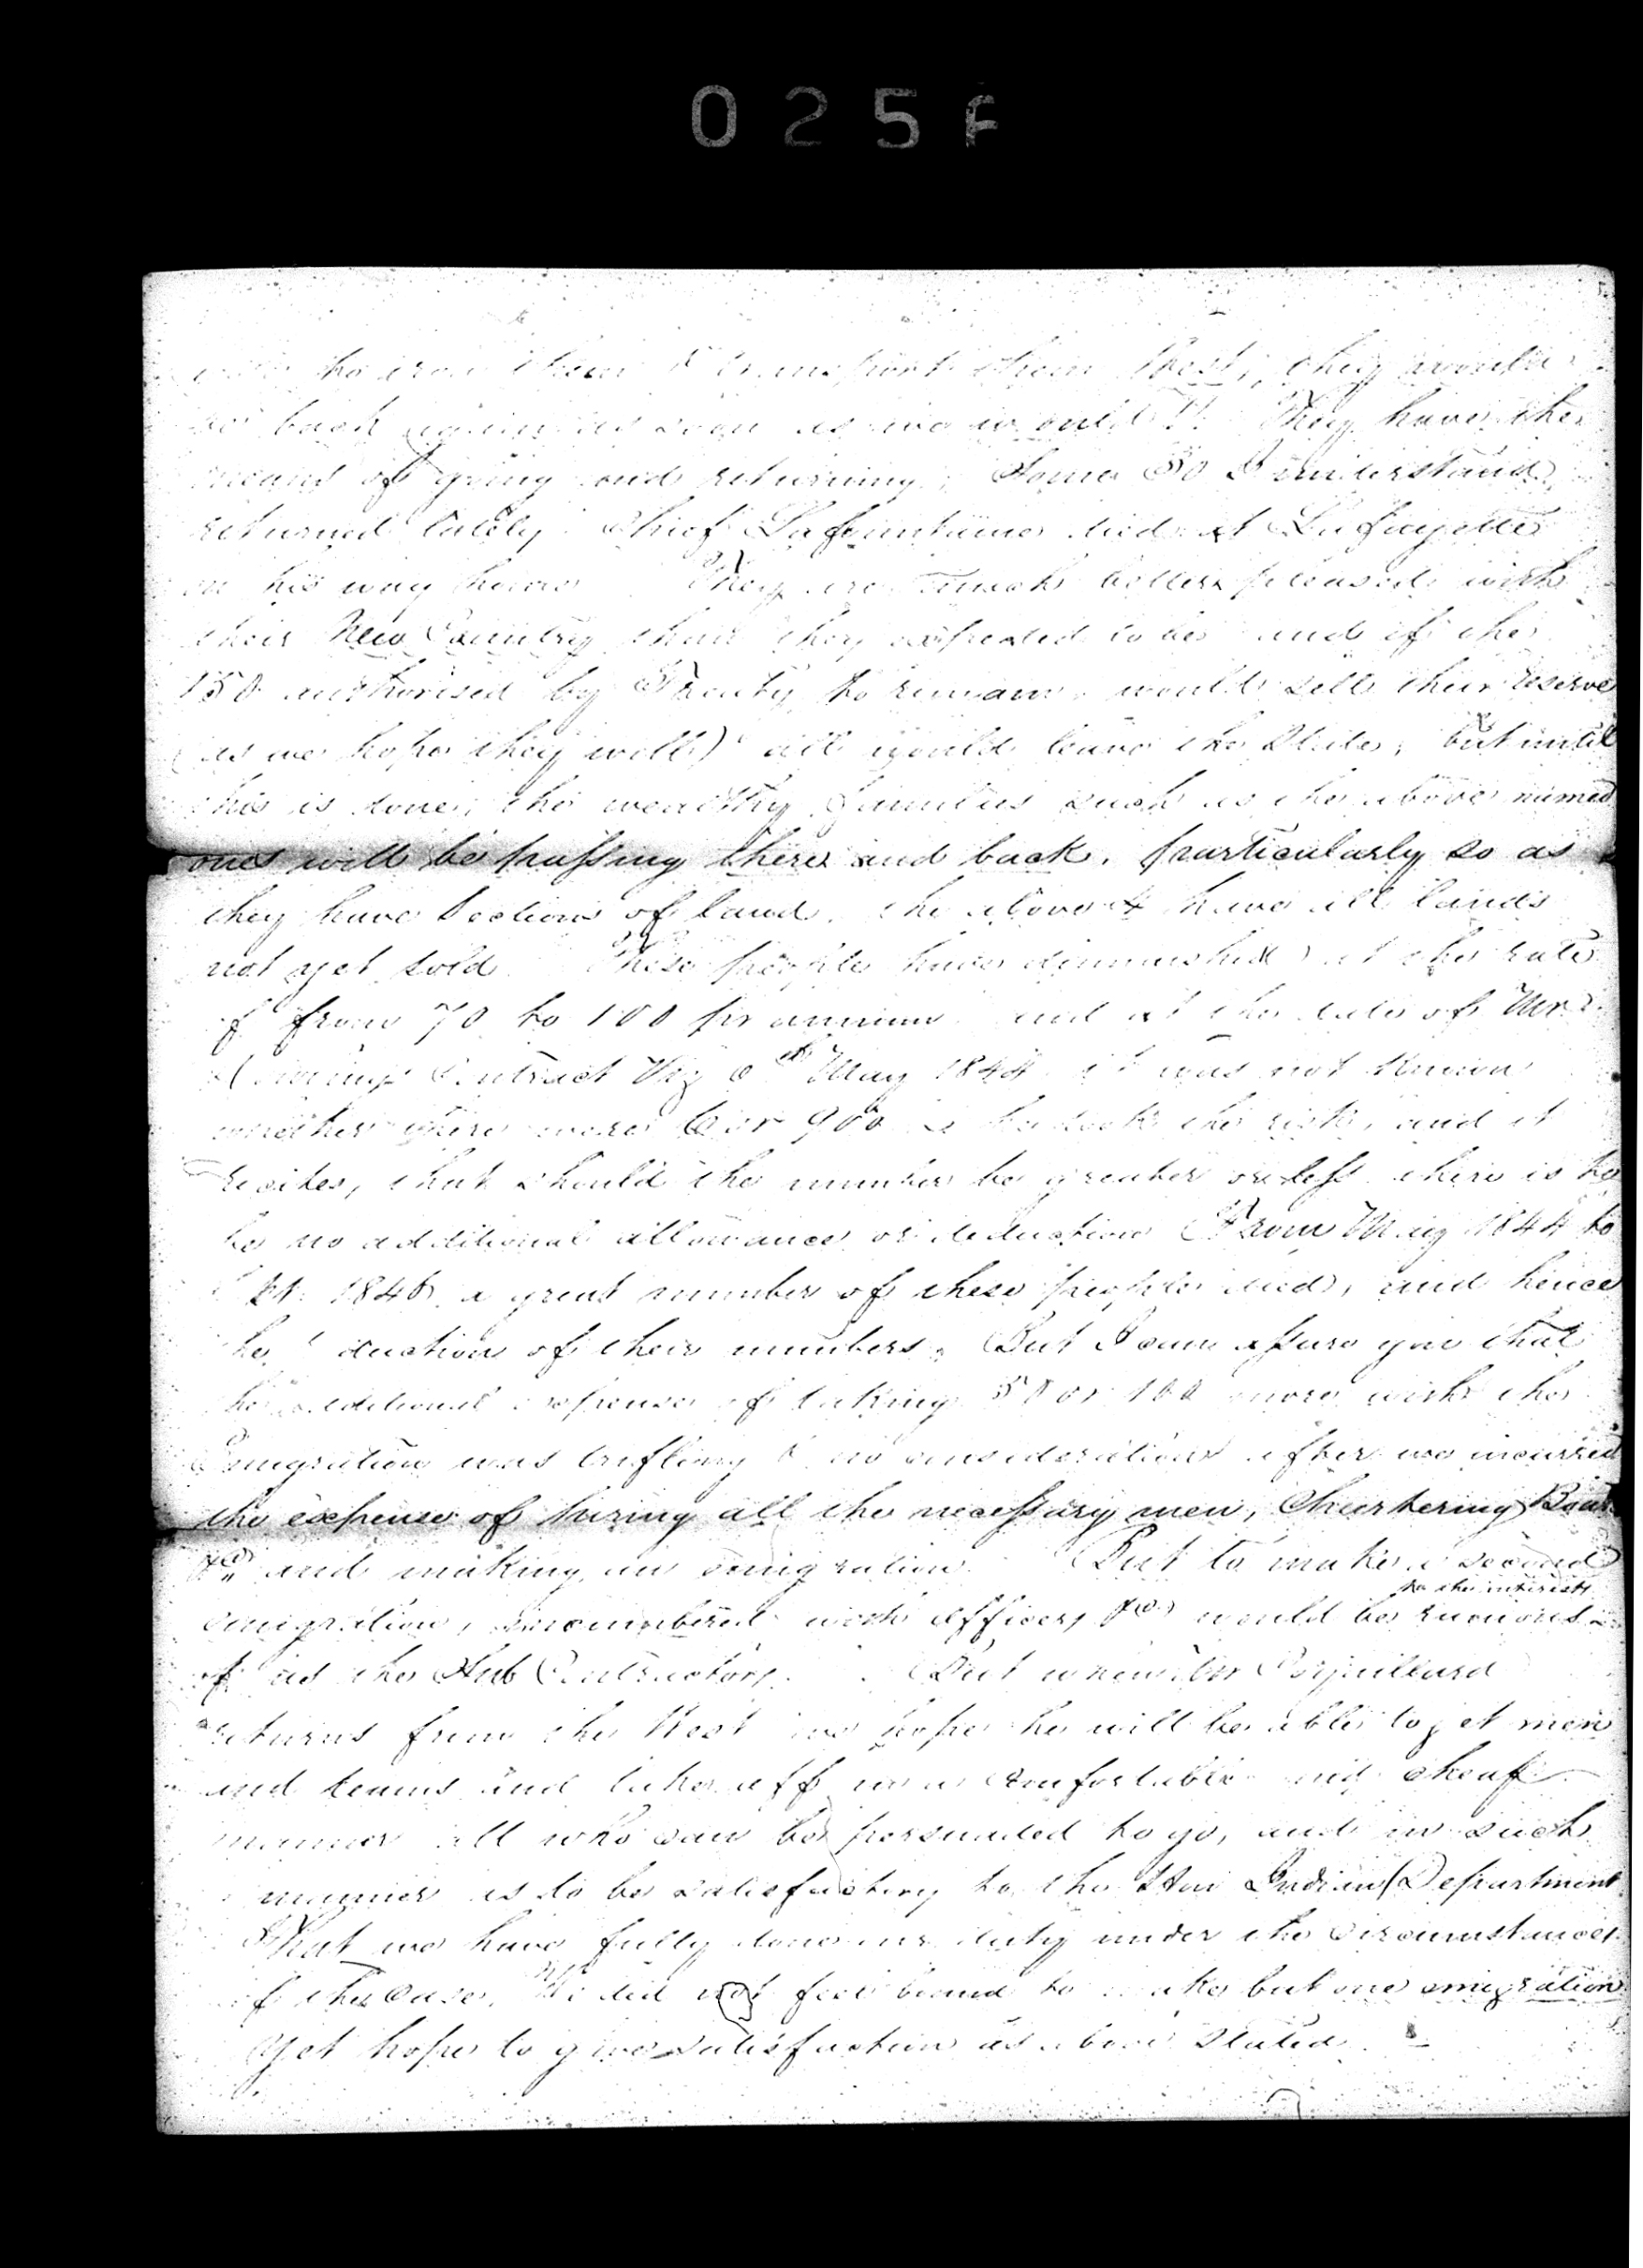 025
them & transport them West, they would
back again as soon as we would. They have the
means of going and returning, Some 50 I understand
returned lately. Chief Lafountaine died at Lafayette
on his way home They are much better pleased with
their New Country than they expected to be and if the
150 authorised by Treaty to remain would sell their reserve
(as we hope they will) all would leave the State, but until
this is done, the wealthy families such as the above named
ones will be passing there and back, particularly so as
they have Sections of land, the above 4 have all lands
not yet sold These people have diminished at the rate
of from 70 to 100 pr annum and at the date of Mr
Contract Viz 6th May 1844 it was not known
whether there were 6 or 900 he took the risk, and it
recites, that should the number be greater or less there is to
be no additional allowance or deduction From May 1844 to
1846 a great number of these people died, and hence
the duction of their numbers. But I can assure you that
the additional expense of taking 50 or 100 more with the
Emigration was trifling & no consideration after we incurred
the expense of hiring all the necessary men, Chartering Boats
&c and making an emigration. But to make a second
to the interests
emigration, incumbered with officers &c would be ruinous
of us the Sub Contractors. But when Mr Coquillard
returns from the West we hope he will be able to get men
and teams and take off in a comfortable and cheap
manner all who can be persuaded to go, and in such
manner as to be satisfactory to the Hon Indian Department
that we have fully done our duty under the circumstances
of the Case. We did not feel bound to make but one emigration
yet hope to give satisfaction as above stated.